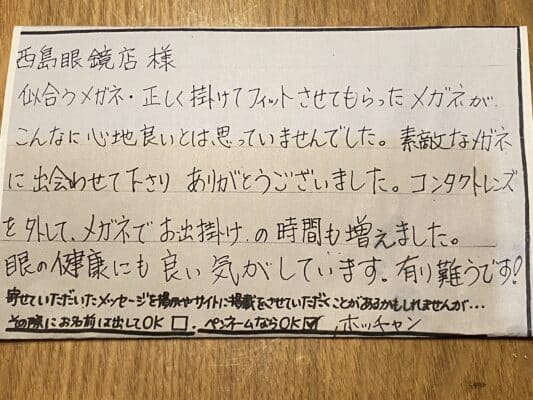 西島眼鏡店 様
似合うメガネ・正しく掛けてフィットさせてもらったメガネが、
こんなに心地良いとは、思っていませんでした。素敵なメガネ
に出会わせて下さり ありがとうございました。コンタクトレンズ
を外して、メガネでお出掛け、の時間も増えました。
眼の健康にも良い気がしています。有り難うです!
寄せていただいたメッセージを掲示やサイトに掲載をさせていただくことがあるかもしれませんが…
その際にお名前は出してOK □ . ペンネームならOK ☑ ホッチャン